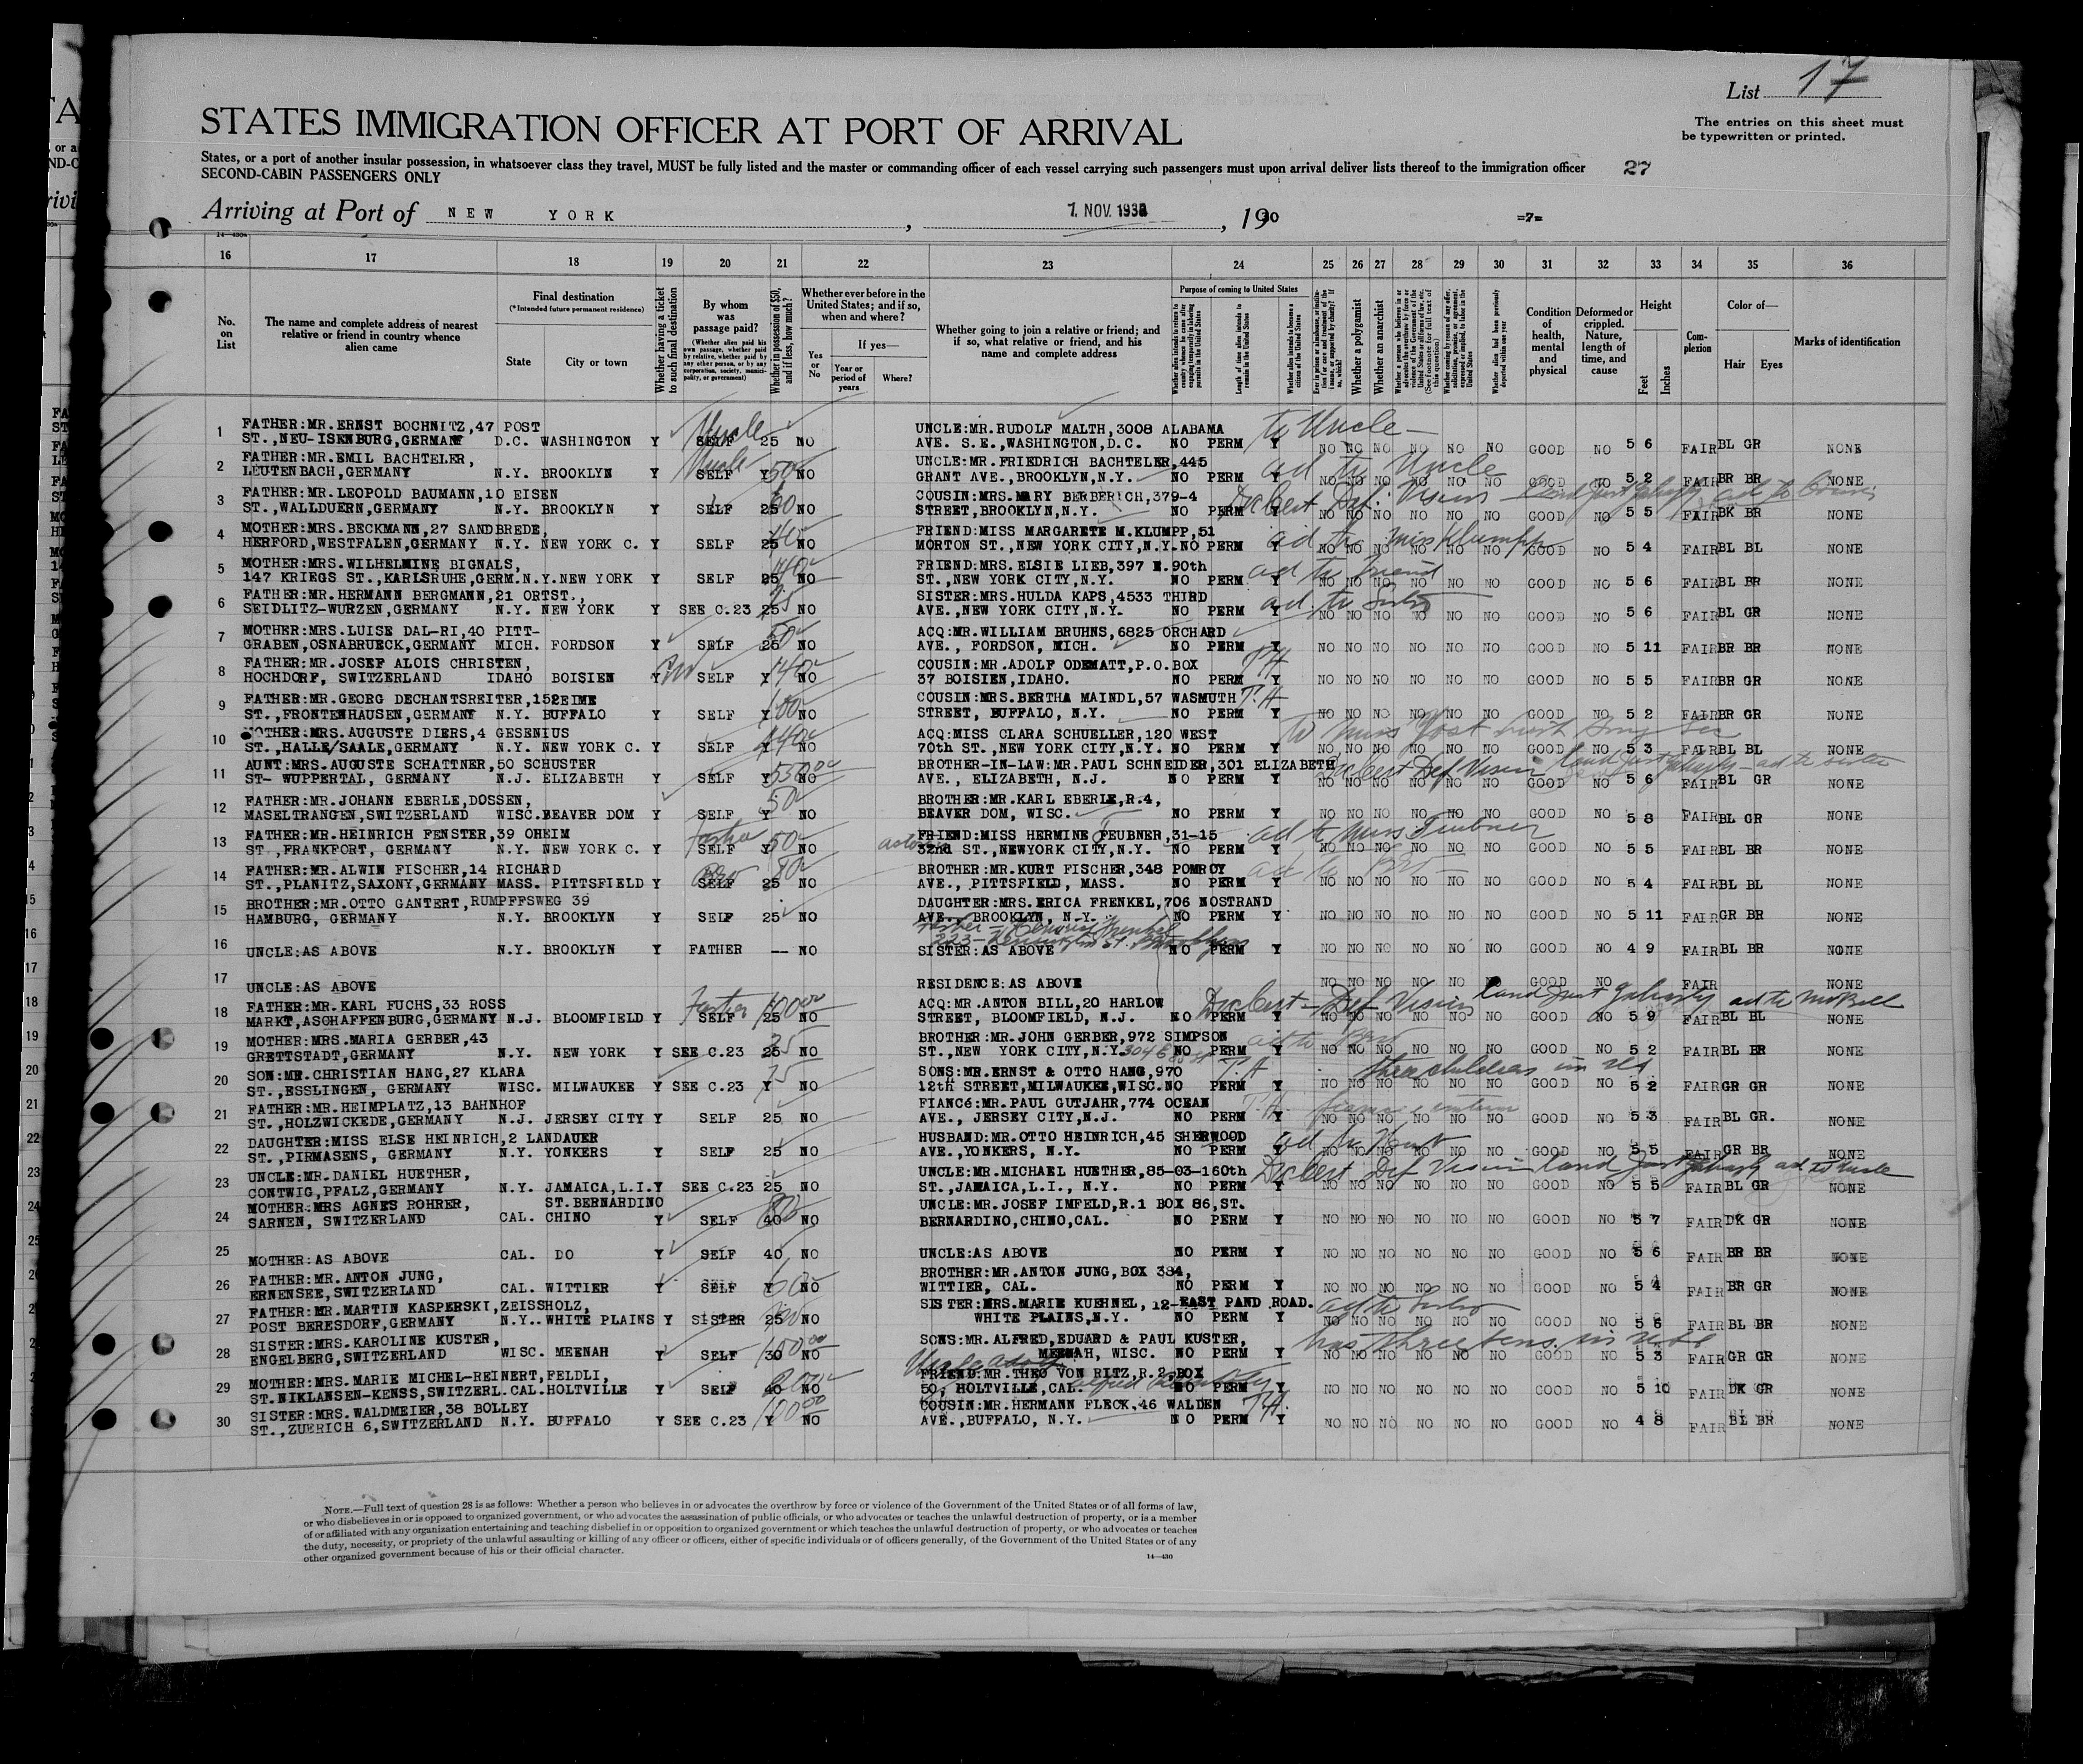 List 17
STATES IMMIGRATION OFFICER AT PORT OF ARRIVAL
The entries on this sheet must
be typewritten or printed.
States, or a port of another insular possession, in whatsoever class they travel, MUST be fully listed and the master or commanding officer of each vessel carrying such passengers must upon arrival deliver lists thereof to the immigration officer 27
SECOND-CABIN PASSENGERS ONLY
Arriving at Port of NEW YORK, 7. NOV. 193, 1930 =7=
16 17 18 19 20 21 22 23 24 25 26 27 28 29 30 31 32 33 34 35 36
No. on List
The name and complete address of nearest relative or friend in country whence alien came
Final destination (*Intended future permanent residence)
State City or town
Whether having a ticket to such final destination
By whom was passage paid?
Whether in possession of $50, and if less, how much?
Whether ever before in the United States; and if so, when and where?
Yes or No
If yes—
Year or period of years Where?
Whether going to join a relative or friend; and if so, what relative or friend, and his name and complete address
Purpose of coming to United States
Whether a polygamist
Whether an anarchist
Condition of health, mental and physical
Deformed or crippled. Nature, length of time, and cause
Height
Feet Inches
Complexion
Color of—
Hair Eyes
Marks of identification
1 FATHER:MR.ERNST BOCHNITZ,47 POST UNCLE:MR.RUDOLF MALTH,3008 ALABAMA to Uncle
ST.,NEU-ISENBURG,GERMANY D.C. WASHINGTON Y SELF Uncle 25 NO AVE. S.E.,WASHINGTON,D.C. NO PERM Y NO NO NO NO NO NO GOOD NO 5 6 FAIR BL GR NONE
2 FATHER:MR.EMIL BACHTELER, UNCLE:MR.FRIEDRICH BACHTELER,445 ad to Uncle
LEUTENBACH,GERMANY N.Y. BROOKLYN Y SELF Uncle Y 50 NO GRANT AVE.,BROOKLYN,N.Y. NO PERM Y NO NO NO NO NO NO GOOD NO 5 2 FAIR BR BR NONE
3 FATHER:MR.LEOPOLD BAUMANN,10 EISEN COUSIN:MRS.MARY BERBERICH,379-4
ST.,WALLDUERN,GERMANY N.Y. BROOKLYN Y SELF 25 NO STREET,BROOKLYN,N.Y. NO PERM Y NO NO NO NO NO NO GOOD NO 5 5 FAIR BK BR NONE
4 MOTHER:MRS.BECKMANN,27 SANDBREDE, FRIEND:MISS MARGARETE M.KLUMPP,51 ad to Miss Klumpp
HERFORD,WESTFALEN,GERMANY N.Y. NEW YORK C. Y SELF 25 NO MORTON ST.,NEW YORK CITY,N.Y. NO PERM Y NO NO NO NO NO NO GOOD NO 5 4 FAIR BL BL NONE
5 MOTHER:MRS.WILHELMINE BIGNALS, FRIEND:MRS.ELSIE LIEB,397 E.90th ad to friend
147 KRIEGS ST.,KARLSRUHE,GERM.N.Y.NEW YORK Y SELF 25 NO ST.,NEW YORK CITY,N.Y. NO PERM Y NO NO NO NO NO NO GOOD NO 5 6 FAIR BL BR NONE
6 FATHER:MR.HERMANN BERGMANN,21 ORTST., SISTER:MRS.HULDA KAPS,4533 THIRD ad. to Sister
SEIDLITZ-WURZEN,GERMANY N.Y. NEW YORK Y SEE C.23 25 NO AVE.,NEW YORK CITY,N.Y. NO PERM Y NO NO NO NO NO NO GOOD NO 5 6 FAIR BL GR NONE
7 MOTHER:MRS.LUISE DAL-RI,40 PITT- ACQ:MR.WILLIAM BRUHNS,6825 ORCHARD
GRABEN,OSNABRUECK,GERMANY MICH. FORDSON Y SELF 25 50 NO AVE., FORDSON, MICH. NO PERM Y NO NO NO NO NO NO GOOD NO 5 11 FAIR BR BR NONE
8 FATHER:MR.JOSEF ALOIS CHRISTEN, COUSIN:MR.ADOLF ODEMATT,P.O.BOX T.H
HOCHDORF, SWITZERLAND IDAHO BOISIEN Y SELF Y NO 37 BOISIEN,IDAHO. NO PERM Y NO NO NO NO NO NO GOOD NO 5 5 FAIR BR GR NONE
9 FATHER:MR.GEORG DECHANTSREITER,15 COUSIN:MRS.BERTHA MAINDL,57 WASMUTH T.H
ST.,FRONTENHAUSEN,GERMANY N.Y. BUFFALO Y SELF Y NO STREET, BUFFALO, N.Y. NO PERM Y NO NO NO NO NO NO GOOD NO 5 2 FAIR BR GR NONE
10 MOTHER:MRS.AUGUSTE DIERS,4 GESENIUS ACQ:MISS CLARA SCHUELLER,120 WEST
ST.,HALLE/SAALE,GERMANY N.Y. NEW YORK C. Y SELF Y NO 70th ST.,NEW YORK CITY,N.Y. NO PERM Y NO NO NO NO NO NO GOOD NO 5 3 FAIR BL BL NONE
11 AUNT:MRS.AUGUSTE SCHATTNER,50 SCHUSTER BROTHER-IN-LAW:MR.PAUL SCHNEIDER,301 ELIZABETH
ST- WUPPERTAL, GERMANY N.J. ELIZABETH Y SELF Y NO AVE., ELIZABETH, N.J. NO PERM Y NO NO NO NO NO NO GOOD NO 5 6 FAIR BL GR NONE
12 FATHER:MR.JOHANN EBERLE,DOSSEN, BROTHER:MR.KARL EBERLE,R.4,
MASELTRANGEN,SWITZERLAND WISC.BEAVER DOM Y SELF Y 50 NO BEAVER DOM, WISC. NO PERM Y NO NO NO NO NO NO GOOD NO 5 8 FAIR BL GR NONE
13 FATHER:MR.HEINRICH FENSTER,39 OHEIM FRIEND:MISS HERMINE FEUBNER,31-15 ad to Miss Feubner
ST.,FRANKFORT, GERMANY N.Y. NEW YORK C. Y SELF Father Y 50 NO 32nd ST.,NEWYORK CITY,N.Y. NO PERM Y NO NO NO NO NO NO GOOD NO 5 5 FAIR BL BR NONE
14 FATHER:MR.ALWIN FISCHER,14 RICHARD BROTHER:MR.KURT FISCHER,348 POMROY ad to Bro
ST.,PLANITZ,SAXONY,GERMANY MASS. PITTSFIELD Y SELF Bro 25 80 NO AVE., PITTSFIELD, MASS. NO PERM Y NO NO NO NO NO NO GOOD NO 5 4 FAIR BL BL NONE
15 BROTHER:MR.OTTO GANTERT,RUMPFFSWEG 39 DAUGHTER:MRS.ERICA FRENKEL,706 NOSTRAND
HAMBURG, GERMANY N.Y. BROOKLYN Y SELF 25 NO AVE., BROOKLYN, N.Y. NO PERM Y NO NO NO NO NO NO GOOD NO 5 11 FAIR GR BR NONE
16 UNCLE:AS ABOVE N.Y. BROOKLYN Y FATHER -- NO SISTER:AS ABOVE NO PERM Y NO NO NO NO NO NO GOOD NO 4 9 FAIR BL BR NONE
17 UNCLE:AS ABOVE RESIDENCE:AS ABOVE NO NO NO NO NO GOOD NO FAIR NONE
18 FATHER:MR.KARL FUCHS,33 ROSS ACQ:MR.ANTON BILL,20 HARLOW
MARKT,ASCHAFFENBURG,GERMANY N.J. BLOOMFIELD Y SELF Father 25 NO STREET, BLOOMFIELD, N.J. NO PERM Y NO NO NO NO NO NO GOOD NO 5 9 FAIR BL BL NONE
19 MOTHER:MRS.MARIA GERBER,43 BROTHER:MR.JOHN GERBER,972 SIMPSON ad to Bro
GRETTSTADT,GERMANY N.Y. NEW YORK Y SEE C.23 25 NO ST.,NEW YORK CITY,N.Y. NO PERM Y NO NO NO NO NO NO GOOD NO 5 2 FAIR BL BR NONE
20 SON:MR.CHRISTIAN HANG,27 KLARA SONS:MR.ERNST & OTTO HANG,970 T.H three children in US
ST.,ESSLINGEN, GERMANY WISC. MILWAUKEE Y SEE C.23 Y NO 12th STREET,MILWAUKEE,WISC.NO PERM Y NO NO NO NO NO NO GOOD NO 5 2 FAIR GR GR NONE
21 FATHER:MR.HEIMPLATZ,13 BAHNHOF FIANCé:MR.PAUL GUTJAHR,774 OCEAN T.H.
ST.,HOLZWICKEDE,GERMANY N.J. JERSEY CITY Y SELF 25 NO AVE., JERSEY CITY,N.J. NO PERM Y NO NO NO NO NO NO GOOD NO 5 3 FAIR BL GR. NONE
22 DAUGHTER:MISS ELSE HEINRICH,2 LANDAUER HUSBAND:MR.OTTO HEINRICH,45 SHERWOOD ad to
ST.,PIRMASENS, GERMANY N.Y. YONKERS Y SELF 25 NO AVE.,YONKERS, N.Y. NO PERM Y NO NO NO NO NO NO GOOD NO 5 5 FAIR GR BR NONE
23 UNCLE:MR.DANIEL HUETHER, UNCLE:MR.MICHAEL HUETHER,85-03-160th
CONTWIG,PFALZ,GERMANY N.Y. JAMAICA,L.I.Y SEE C.23 25 NO ST.,JAMAICA,L.I., N.Y. NO PERM Y NO NO NO NO NO NO GOOD NO 5 5 FAIR BL GR NONE
24 MOTHER:MRS AGNES ROHRER, ST.BERNARDINO UNCLE:MR.JOSEF IMFELD,R.1 BOX 86,ST.
SARNEN, SWITZERLAND CAL. CHINO Y SELF 40 NO BERNARDINO,CHINO,CAL. NO PERM Y NO NO NO NO NO NO GOOD NO 5 7 FAIR DK GR NONE
25 MOTHER:AS ABOVE CAL. DO Y SELF 40 NO UNCLE:AS ABOVE NO PERM Y NO NO NO NO NO NO GOOD NO 5 6 FAIR BR BR NONE
26 FATHER:MR.ANTON JUNG, BROTHER:MR.ANTON JUNG,BOX 384,
ERNENSEE,SWITZERLAND CAL. WITTIER Y SELF Y NO WITTIER, CAL. NO PERM Y NO NO NO NO NO NO GOOD NO 5 4 FAIR BR GR NONE
27 FATHER:MR.MARTIN KASPERSKI,ZEISSHOLZ, SISTER:MRS.MARIE KUEHNEL, 12-EAST PAND ROAD. ad to Sister
POST BERESDORF,GERMANY N.Y..WHITE PLAINS Y SISTER 25 NO WHITE PLAINS,N.Y. NO PERM Y NO NO NO NO NO NO GOOD NO 5 6 FAIR BL BR NONE
28 SISTER:MRS.KAROLINE KUSTER, SONS:MR.ALFRED,EDUARD & PAUL KUSTER, has three sons in
ENGELBERG,SWITZERLAND WISC. MEENAH Y SELF 30 NO MEENAH, WISC. NO PERM Y NO NO NO NO NO NO GOOD NO 5 3 FAIR GR GR NONE
29 MOTHER:MRS.MARIE MICHEL-REINERT,FELDLI, FRIEND:MR.THEO VON RITZ,R.2,BOX
ST.NIKLANSEN-KENSS,SWITZERL.CAL.HOLTVILLE Y SELF 40 NO 50, HOLTVILLE,CAL. NO PERM Y NO NO NO NO NO NO GOOD NO 5 10 FAIR DK GR NONE
30 SISTER:MRS.WALDMEIER,38 BOLLEY COUSIN:MR.HERMANN FLECK,46 WALDEN T.H.
ST.,ZUERICH 6,SWITZERLAND N.Y. BUFFALO Y SEE C.23 Y NO AVE.,BUFFALO, N.Y. NO PERM Y NO NO NO NO NO NO GOOD NO 4 8 FAIR BL BR NONE
NOTE.—Full text of question 28 is as follows: Whether a person who believes in or advocates the overthrow by force or violence of the Government of the United States or of all forms of law,
or who disbelieves in or is opposed to organized government, or who advocates the assassination of public officials, or who advocates or teaches the unlawful destruction of property, or is a member
of or affiliated with any organization entertaining and teaching disbelief in or opposition to organized government or which teaches the unlawful destruction of property, or who advocates or teaches
the duty, necessity, or propriety of the unlawful assaulting or killing of any officer or officers, either of specific individuals or of officers generally, of the Government of the United States or of any
other organized government because of his or their official character.
14—430